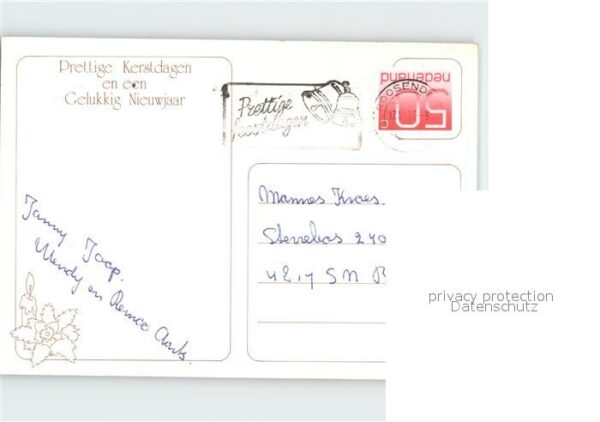 Prettige Kerstdagen
en een
Gelukkig Nieuwjaar
Prettige
feestdagen
ROOSENDA
nederland
50
c
Janny Jaap.
Wendy en Remco Aarts
Mannes
Sterrebos 240
4817 SN
privacy protection
Datenschutz